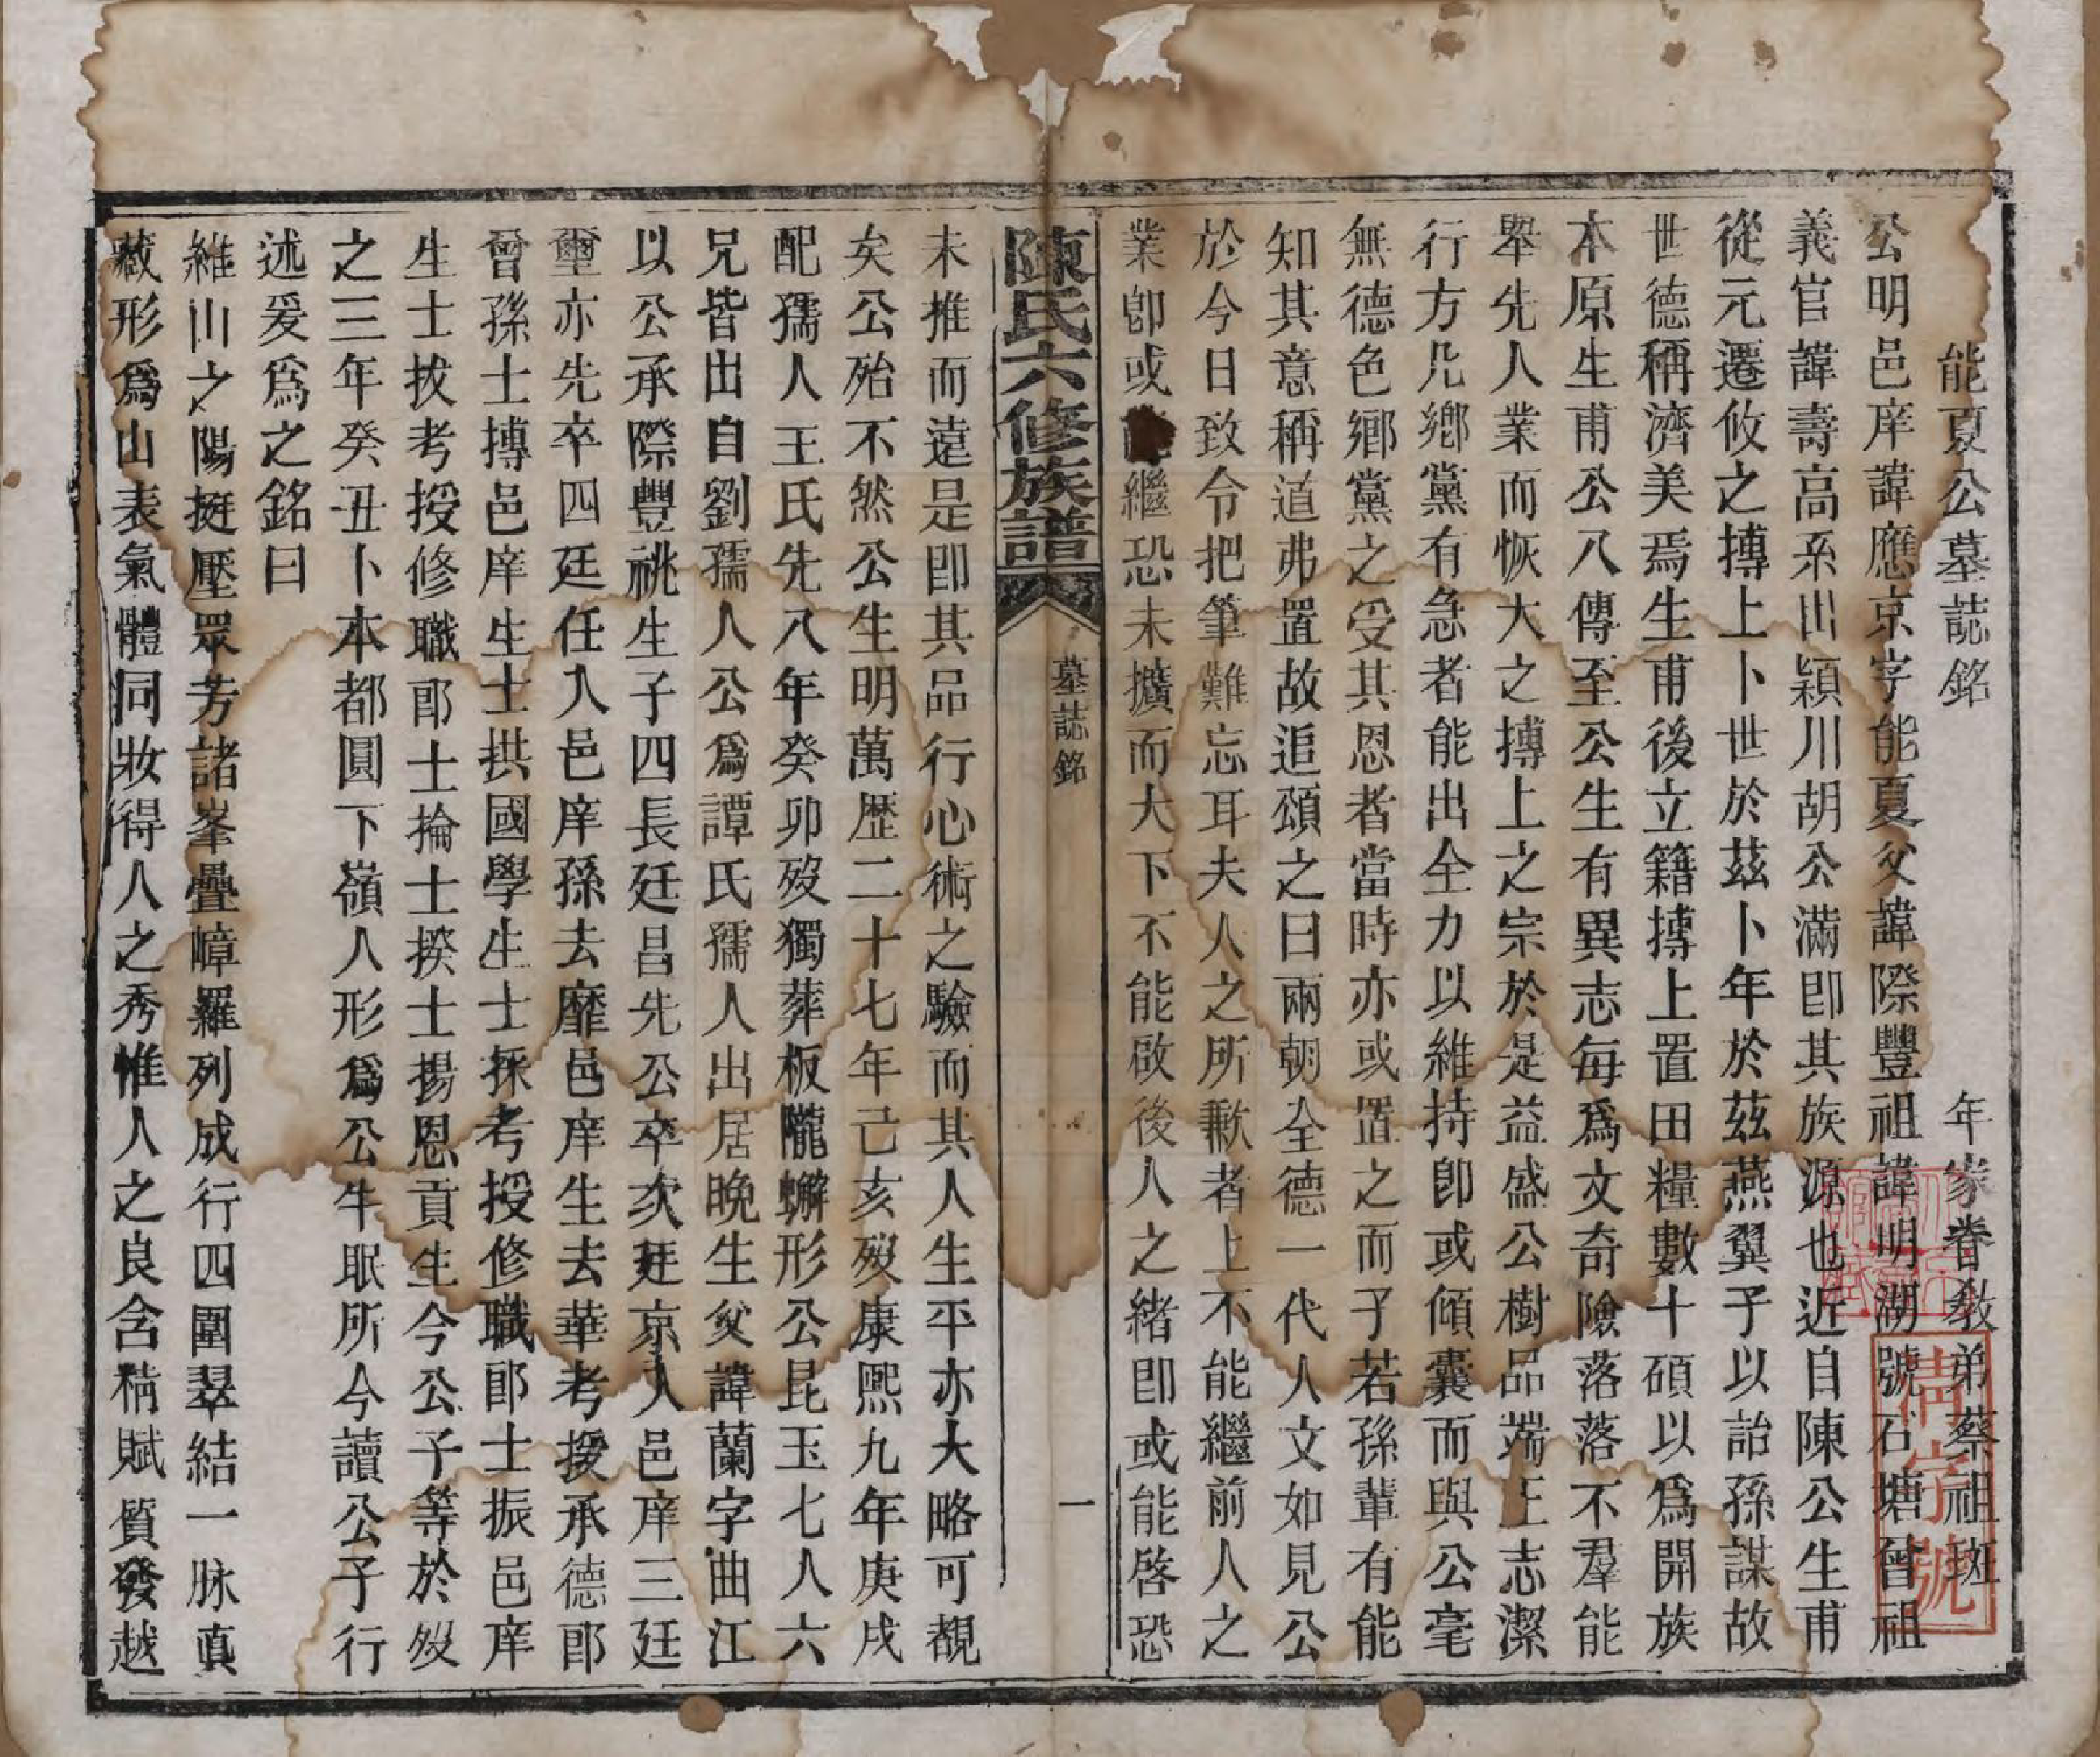 能夏公墓誌銘　年家眷教弟蔡祖斑
公明邑庠諱應京字能夏父諱際豐祖諱明湖號石塘曾祖
義官諱壽高系出穎川胡公滿卽其族源也近自陳公生甫
從元遷攸之搏上卜世於茲卜年於茲燕翼子以詒孫謀故
世德稱濟美焉生甫後立籍搏上置田糧數十碩以爲開族
本原生甫公八傳至公生有異志每爲文奇險落落不羣能
舉先人業而恢大之搏上之宗於是益盛公樹品端正志潔
行方凡鄉黨有急者能出全力以維持卽或傾囊而與公毫
無德色鄉黨之受其恩者當時亦或置之而子若孫輩有能
知其意稱道弗置故追頌之曰兩朝全德一代人文如見公
於今日致令把筆難忘耳夫人之所歉者上不能繼前人之
業卽或繼恐未擴而大下不能啟後人之緒卽或能啓恐
陳氏六修族譜
墓誌銘
一
未推而遠是卽其品行心術之驗而其人生平亦大略可覩
矣公殆不然公生明萬歷二十七年己亥歿康熙九年庚戌
配孺人王氏先八年癸卯歿獨葬板隴蠏形公昆玉七人六
兄皆出自劉孺人公爲譚氏孺人出居晚生父諱蘭字曲江
以公承際豐祧生子四長廷昌先公卒次廷京入邑庠三廷
璽亦先卒四廷任入邑庠孫去靡邑庠生去華考授承德郎
曾孫士搏邑庠生士拱國學生士採考授修職郎士振邑庠
生士拔考授修職郎士掄士揆士揚恩貢生今公子等於歿
之三年癸丑卜本都圓下嶺人形爲公牛眠所今讀公子行
述爰爲之銘曰
維山之陽挺壓眾芳諸峯疊嶂羅列成行四圍翠結一脉眞
藏形爲山表氣體同妝得人之秀惟人之良含精賦質發越